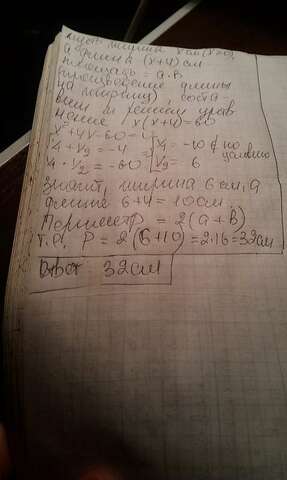 пусть ширина x см (x>0),
а длина (x+4) см
площадь = a·b
(произведение длины
на ширину), соста
вим и решим урав
нение x(x+4)=60
x²+4x-60=0
x₁+x₂=-4 x₁=-10 ∉ по
x₁·x₂=-60 x₂=6 условию
значит, ширина 6 см, а
длина 6+4=10 см.
Периметр = 2(a+b)
т.о, P=2(6+10)=2·16=32см
Ответ: 32см